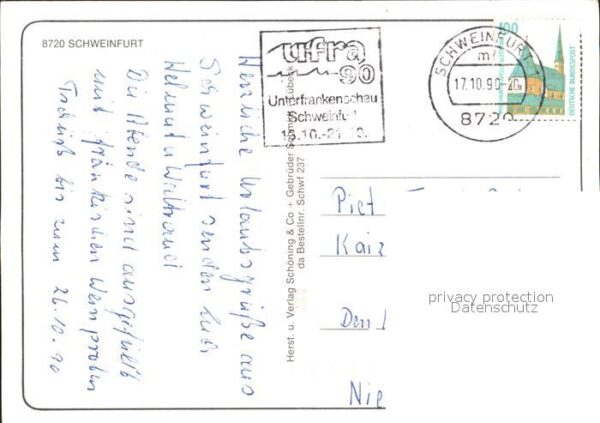 8720 SCHWEINFURT
ufra
90
Unterfrankenschau
Schweinfurt
13.10.-21.10.
SCHWEINFURT 1
mf
17.10.90-20
8720
100
DEUTSCHE BUNDESPOST
Herzliche Urlaubsgrüße aus
Schweinfurt senden Euch
Helmut u Waltraud
Die Abende sind ausgefüllt
mit fränkischen Weinproben
Tschüß bis zum 26.10.90
Herst. u. Verlag Schöning & Co + Gebrüder Schmidt, Lübeck
da Bestellnr. Schwf 237
Piet
Kaiz
Den
Nie
privacy protection
Datenschutz